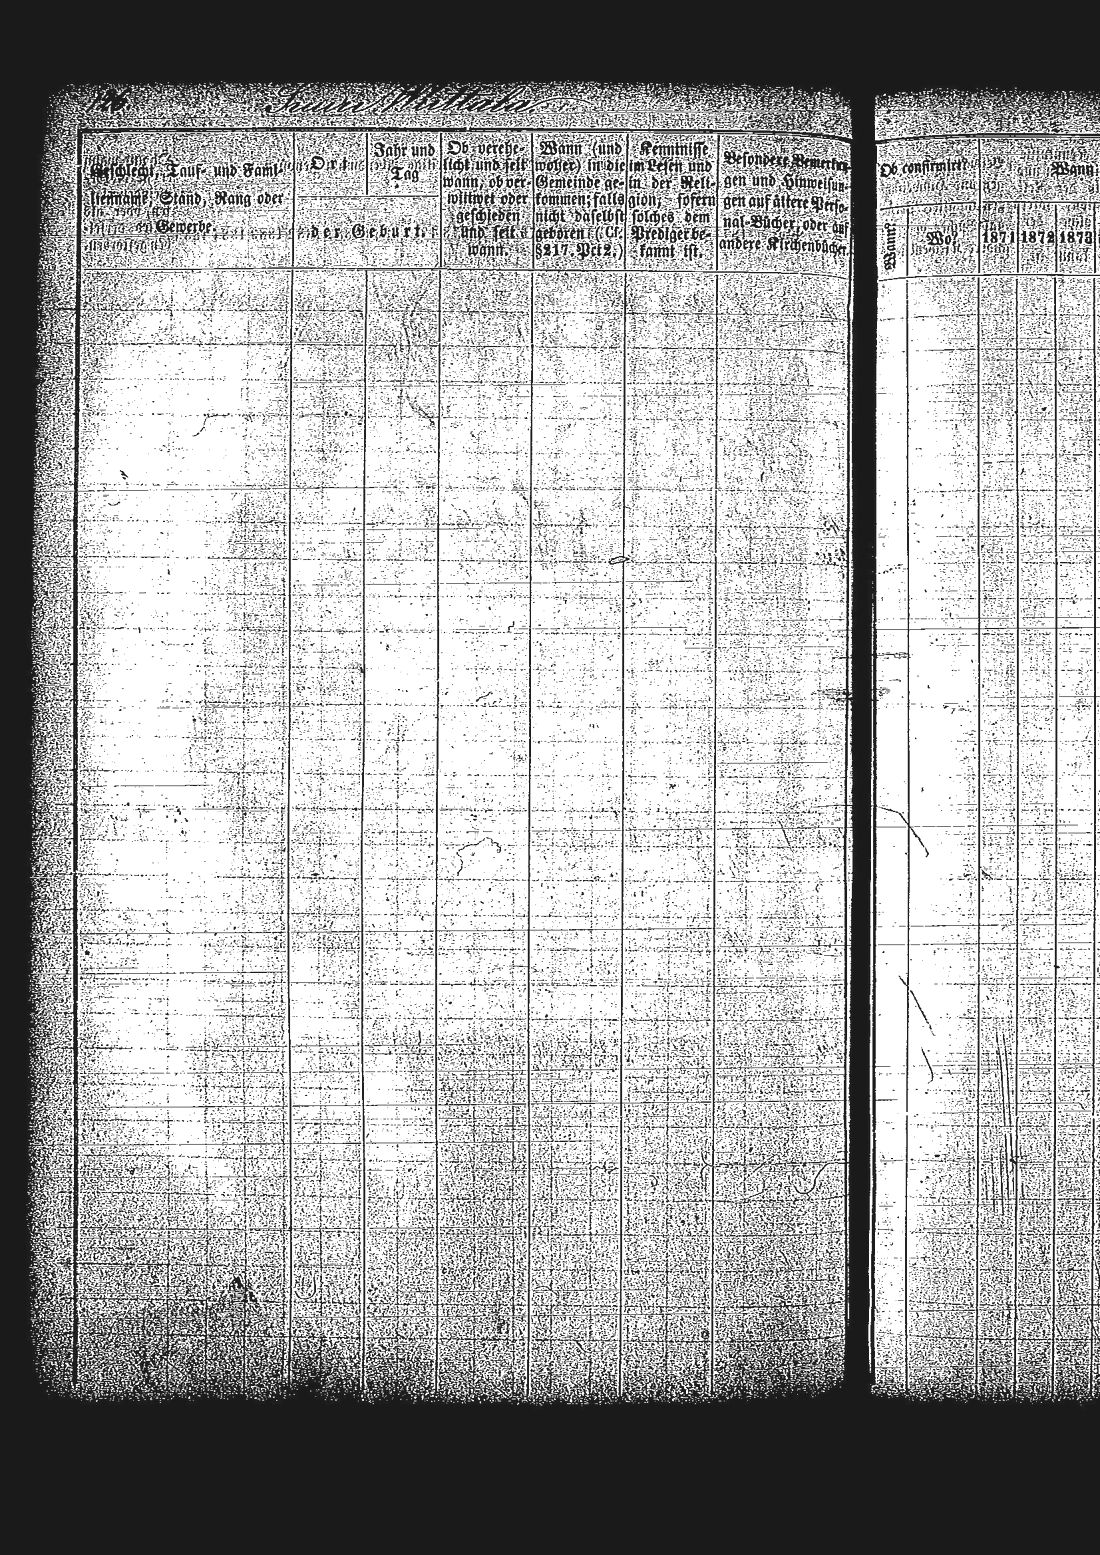 Geschlecht, Tauf- und Fami-
lienname, Stand, Rang oder
Gewerbe.
Ort
Jahr und
Tag
der Geburt.
Ob verehe-
licht und seit
wann, ob ver-
wittwet oder
geschieden
und seit
wann.
Wann (und
woher) in die
Gemeinde ge-
kommen; falls
nicht daselbst
geboren (Cf.
§217. Pct 2.)
Kenntnisse
im Lesen und
in der Reli-
gion, sofern
solches dem
Prediger be-
kannt ist.
Besondere Bemerkun-
gen und Hinweisun-
gen auf ältere Perso-
nal-Bücher, oder auf
andere Kirchenbücher.
Ob confirmirt?
Wann?
Wo?
Wann
1871 1872 1873